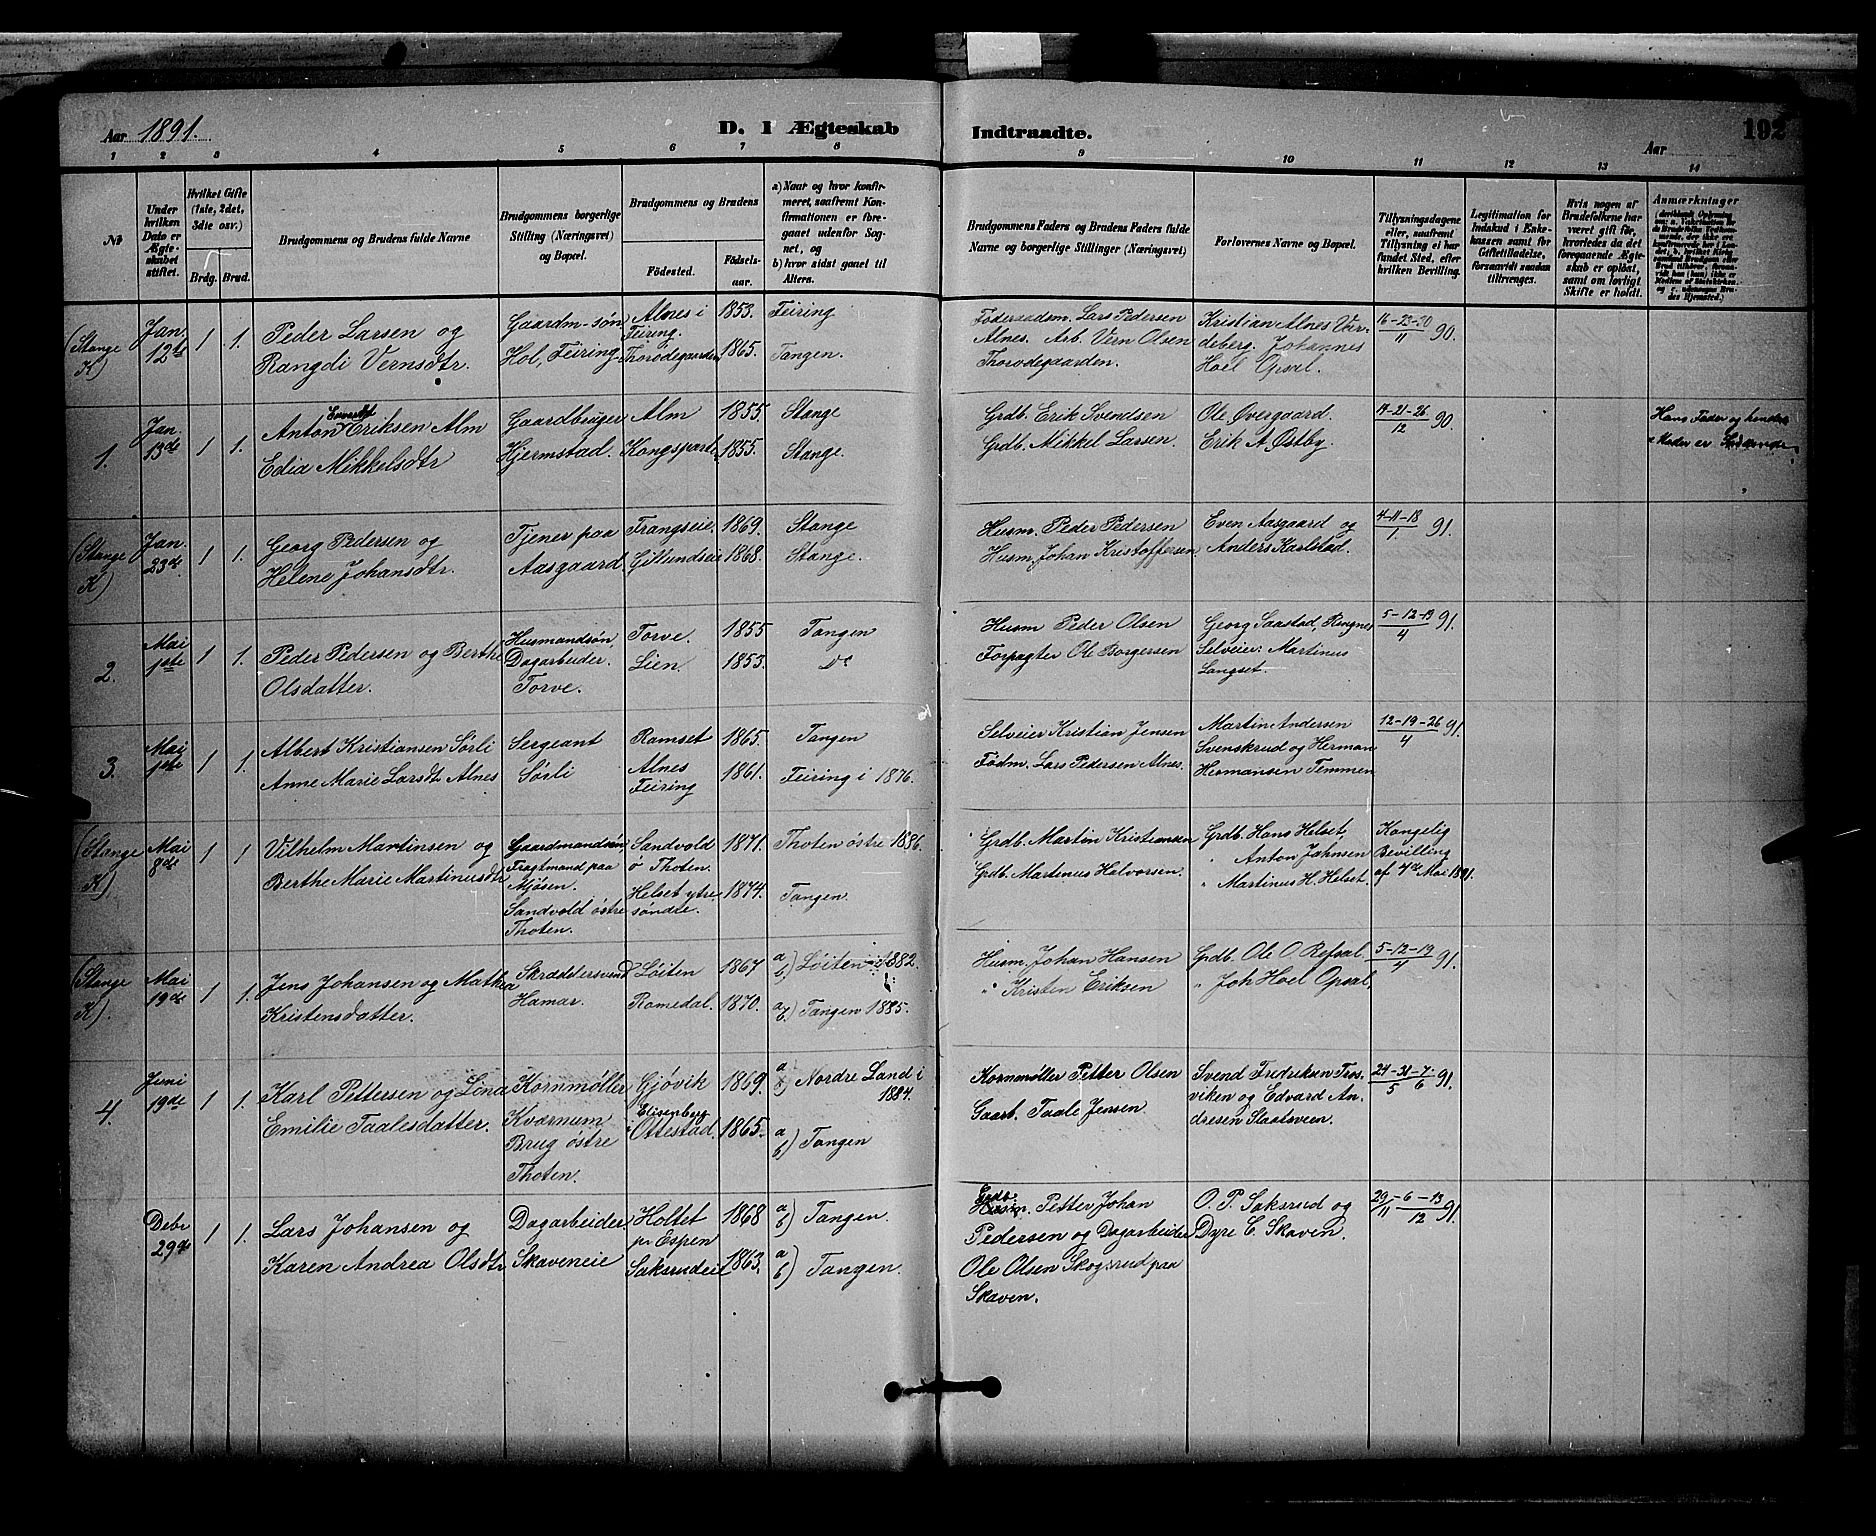 Aar 1891.
D. I Ægteskab Indtraadte.
Aar
192
1 2 3 4 5 6 7 8 9 10 11 12 13 14
No
Under hvilken Dato er Ægteskabet stiftet.
Hvilket Gifte (1ste, 2det, 3die osv.)
Brdg. Brud.
Brudgommens og Brudens fulde Navne
Brudgommens borgerlige Stilling (Næringsvei) og Bopæl.
Brudgommens og Brudens
Fødested. Fødselsaar.
a) Naar og hvor konfirmeret, saafremt Konfirmationen er foregaaet udenfor Sognet, og
b) hvor sidst gaaet til Alters.
Brudgommens Faders og Brudens Faders fulde Navne og borgerlige Stillinger (Næringsvei)
Forlovernes Navne og Bopæl.
Tillysningsdagene eller, saafremt Tillysning ei har fundet Sted, efter hvilken Bevilling.
Legitimation for Indskud i Enkekassen samt for Giftetilladelse, forsaavidt saadan tiltrænges.
Hvis nogen af Brudefolkene har været gift før, hvorledes da det foregaaende Ægteskab er opløst, samt om lovligt Skifte er holdt.
Anmærkninger
(Stange K) Jan. 12te 1 1.
Peder Larsen og
Rangdi Vernsdtr.
Gaardm-søn
Hol, Feiring
Alnes i Feiring.
Thorødegaarden
1853.
1865.
Feiring
Tangen.
Føderaadsm. Lars Pedersen
Alnes. Arb. Vern Olsen
Thorødegaarden.
Kristian Alnes Vardeberg. Johannes
Hoel Opsal.
16-23-30/11 90.
1. Jan. 13de 1 1.
Anton Eriksen Alm
Edia Mikkelsdtr
Gaardbruger
Hjermstad.
Alm
Kongsparte
1855.
1855.
Stange
Stange.
Grdb. Erik Svendsen
Grdb. Mikkel Larsen
Ole Øvergaard.
Erik A. Østby.
14-21-26/12 90.
Hans Fader og hendes
Moder er Sødskende
(Stange K) Jan. 23de 1 1.
Georg Pedersen og
Helene Johansdtr.
Tjener paa
Aasgaard.
Frangseie.
Gillundseie
1869.
1868.
Stange
Stange.
Husm. Peder Pedersen
Husm. Johan Kristoffersen
Even Aasgaard og
Anders Karlstad.
4-11-18/1 91.
2. Mai 1ste 1 1.
Peder Pedersen og Berthe
Olsdatter.
Husmandsøn,
Dagarbeider.
Torve.
Torve.
Lien.
1855
1853.
Tangen
Do
Husm Peder Olsen
Forpagter Ole Borgersen
Georg Saastad, Ringnes
Selveier Martinus
Langset.
5-12-19/4 91.
3. Mai 1ste 1 1.
Albert Kristiansen Sørli
Anne Marie Larsdt. Alnes
Sergeant
Sørli
Ramset
Alnes
Feiring
1865.
1861.
Tangen
Feiring i 1876.
Selveier Kristian Jensen
Fødm. Lars Pedersen Alnes.
Martin Andersen
Svenskrud og Herman
Hermansen Temmen
12-19-26/4 91.
(Stange K). Mai 8de 1 1
Vilhelm Martinsen og
Berthe Marie Martinusdtr
Gaardmandsøn
Fragtmand paa
Mjøsen.
Sandvold østre
Thoten.
Sandvold
ø Thoten.
Helset ytre
søndre.
1871.
1874.
Thoten østre 1886.
Tangen.
Grdb. Martin Kristiansen
Grdb. Martinus Halvorsen.
Grdb. Hans Helset,
" Anton Jahnsen
" Martinus H. Helset.
Kongelig
Bevilling
af 7de Mai 1891.
(Stange K). Mai 19de 1 1.
Jens Johansen og Mathea
Kristensdatter.
Skræddersvend
Hamar.
Løiten
Romedal.
1867
1870.
a b) Løiten i 1882.
a b) Tangen 1885.
Husm. Johan Hansen
" Kristen Eriksen
Grdb. Ole O. Refsal.
" Joh Hoel Opsal.
5-12-19/4 91.
4. Juni 19de 1 1.
Karl Pettersen og Lina
Emilie Taalesdatter.
Kornmøller
Kvornum
Brug østre
Thoten.
Gjøvik
Elisenberg
i Ottestad.
1869.
1865.
a) Nordre Land i
1884.
a b) Tangen
Kornmøller Petter Olsen
Gaarb. Taale Jensen.
Svend Fredriksen Frosviken og Edvard Andresen Slaatsveen.
24-31/5-7/6 91.
Debr 29de 1 1.
Lars Johansen og
Karen Andrea Olsdtr
Dagarbeider
Skaveneie
Holtet
pr Espen
Saksrudeie
1868
1863.
a b) Tangen.
a b) Tangen.
Grdb.
Husm. Petter Johan
Pedersen og Dagarbeider
Ole Olsen Skogsrud paa
Skaven.
O. P. Saksrud og
Dyre C. Skaven.
29/11-6-13/12 91.